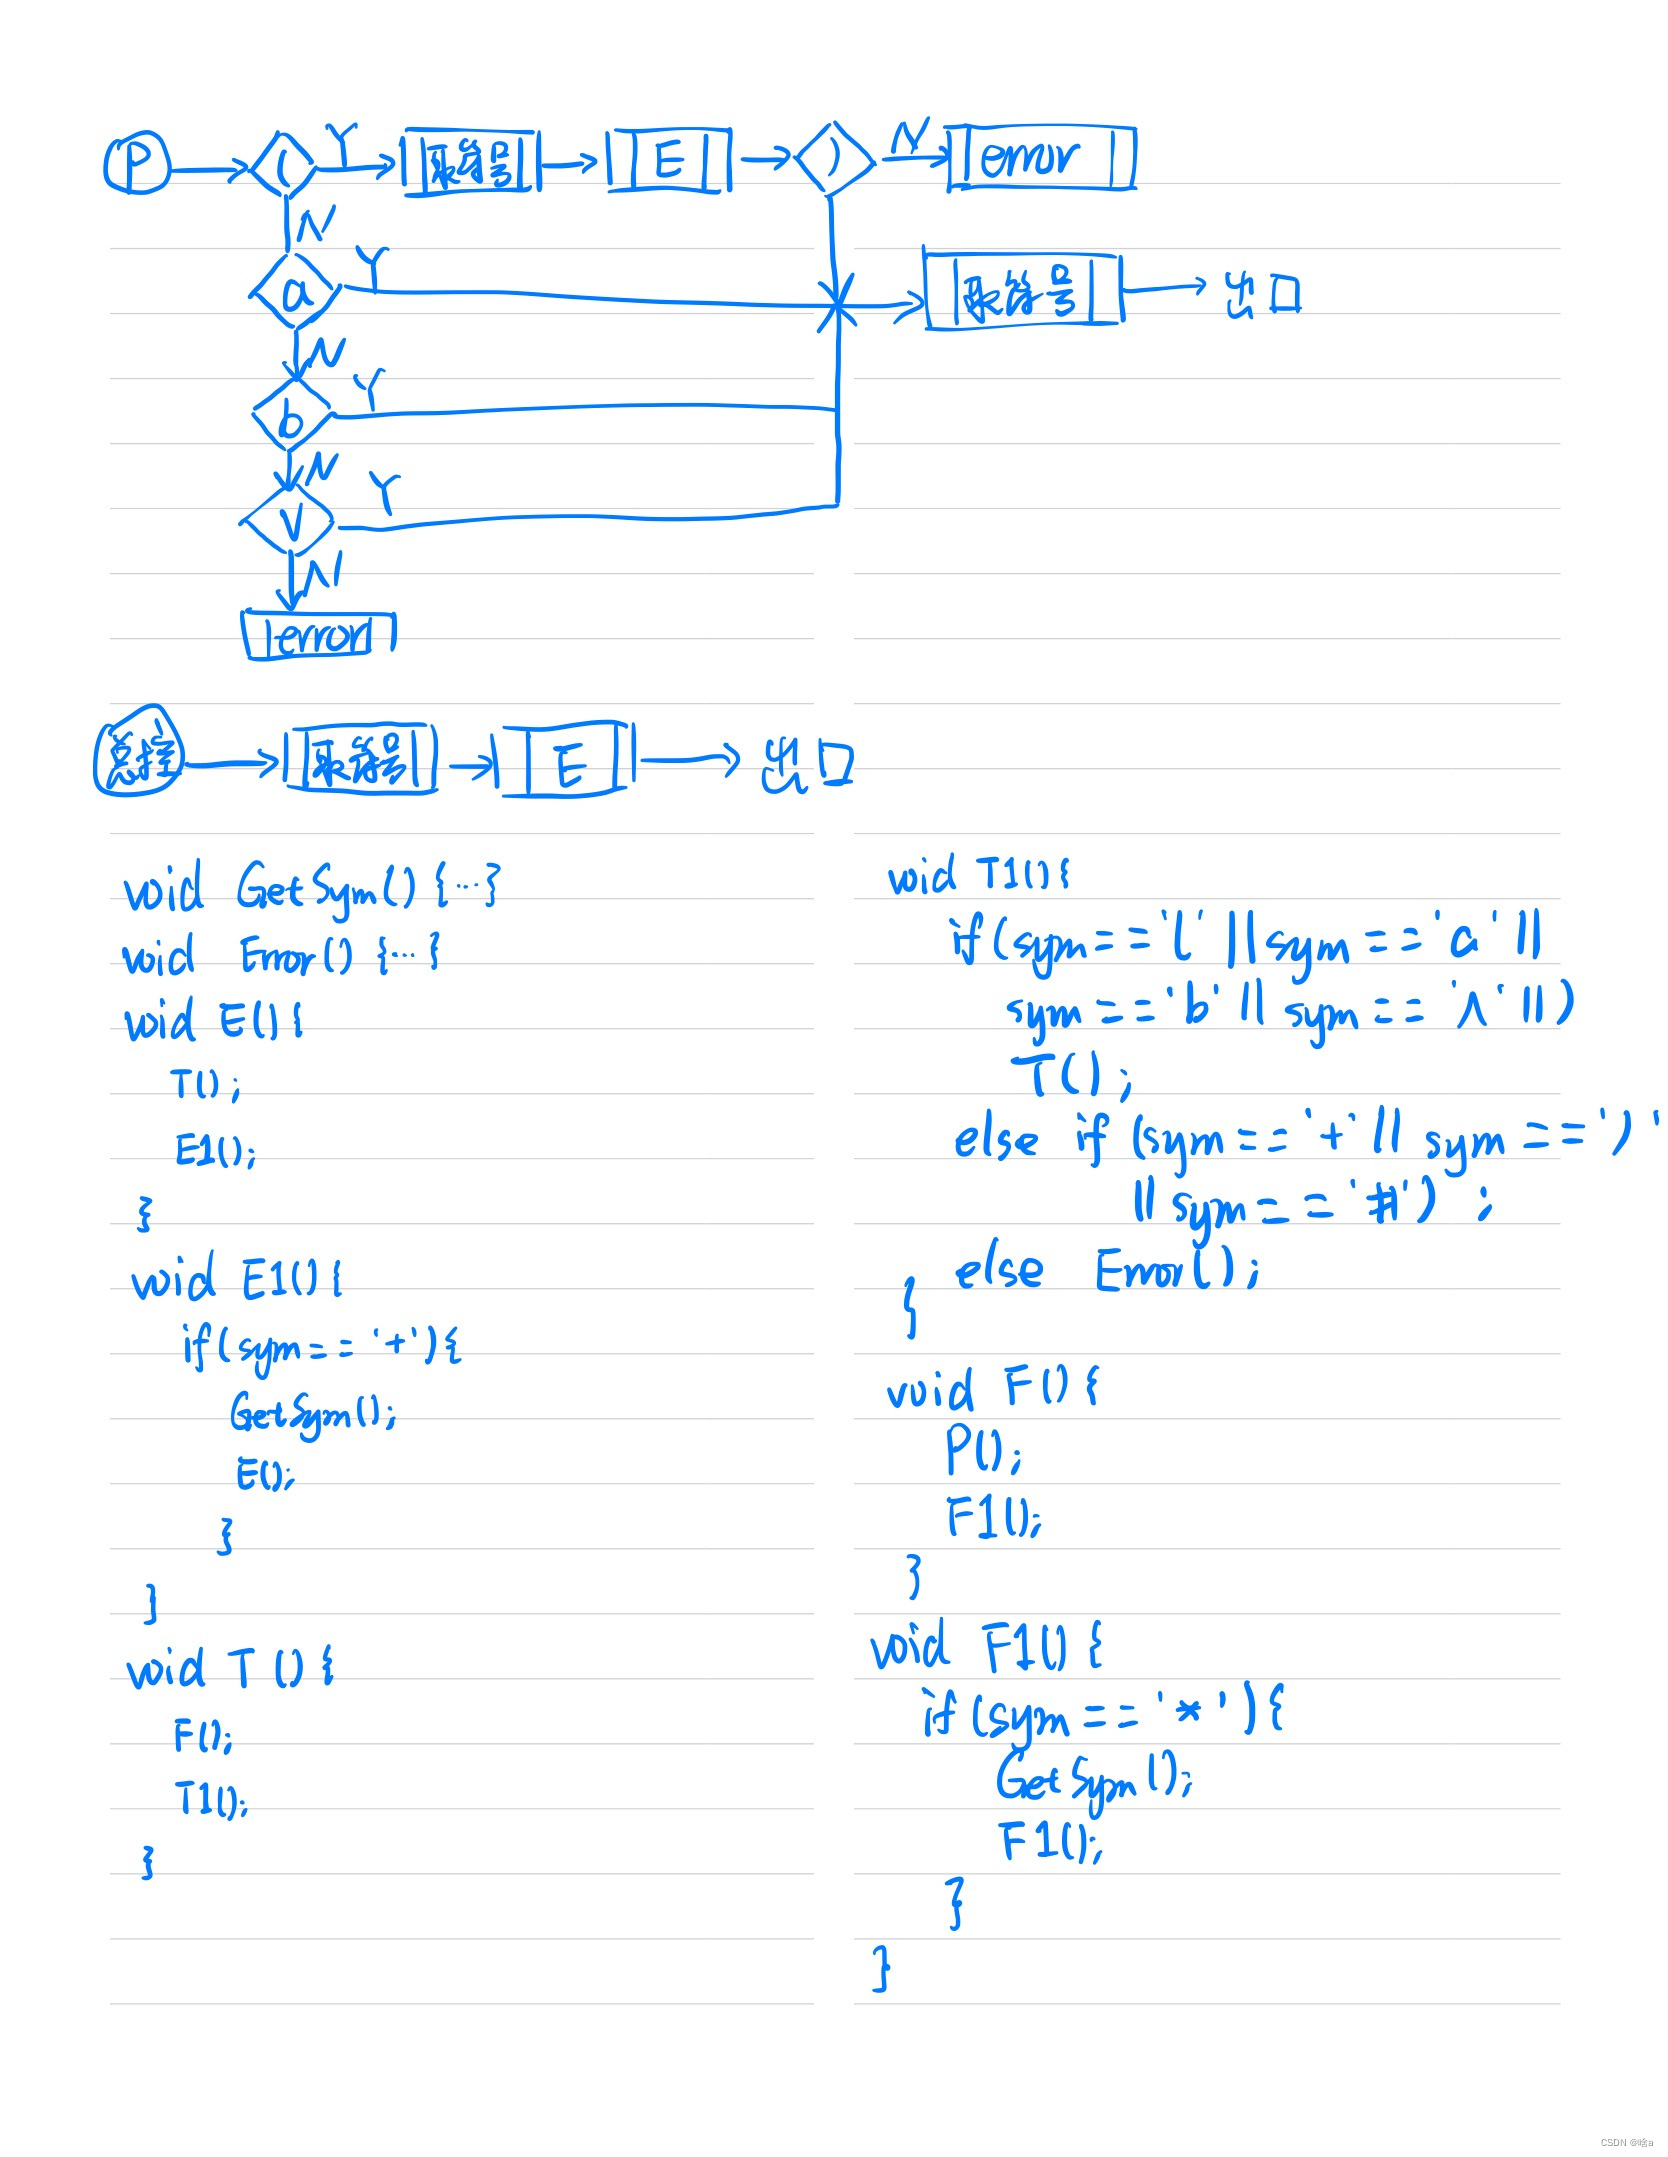 P ( Y 取符号 E ) N error
N
a Y 取符号 出口
N
b Y
N
V Y
N
error
总控 取符号 E 出口
void GetSym() {...}
void Error() {...}
void E(){
T();
E1();
}
void E1(){
if(sym=='+'){
GetSym();
E();
}
}
void T(){
F();
T1();
}
void T1(){
if(sym=='(' || sym=='a' ||
sym=='b' || sym=='∧' ||)
T();
else if (sym=='+' || sym==')'
|| sym=='#') ;
else Error();
}
void F(){
P();
F1();
}
void F1(){
if(sym=='*'){
GetSym();
F1();
}
}
CSDN @啥a